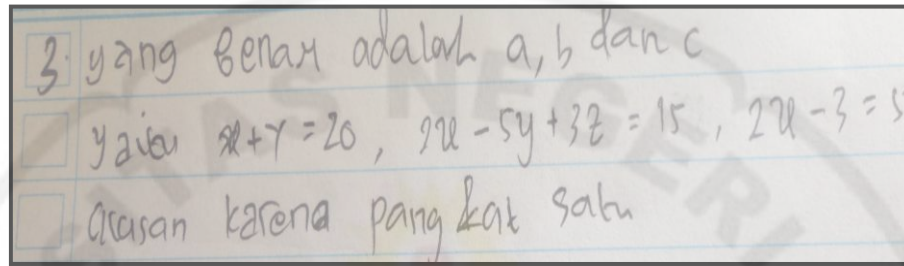 3. yang benar adalah a, b dan c
yaitu x + y = 20, 2x - 5y + 3z = 15, 2x - 3 = 5
alasan karena pangkat satu